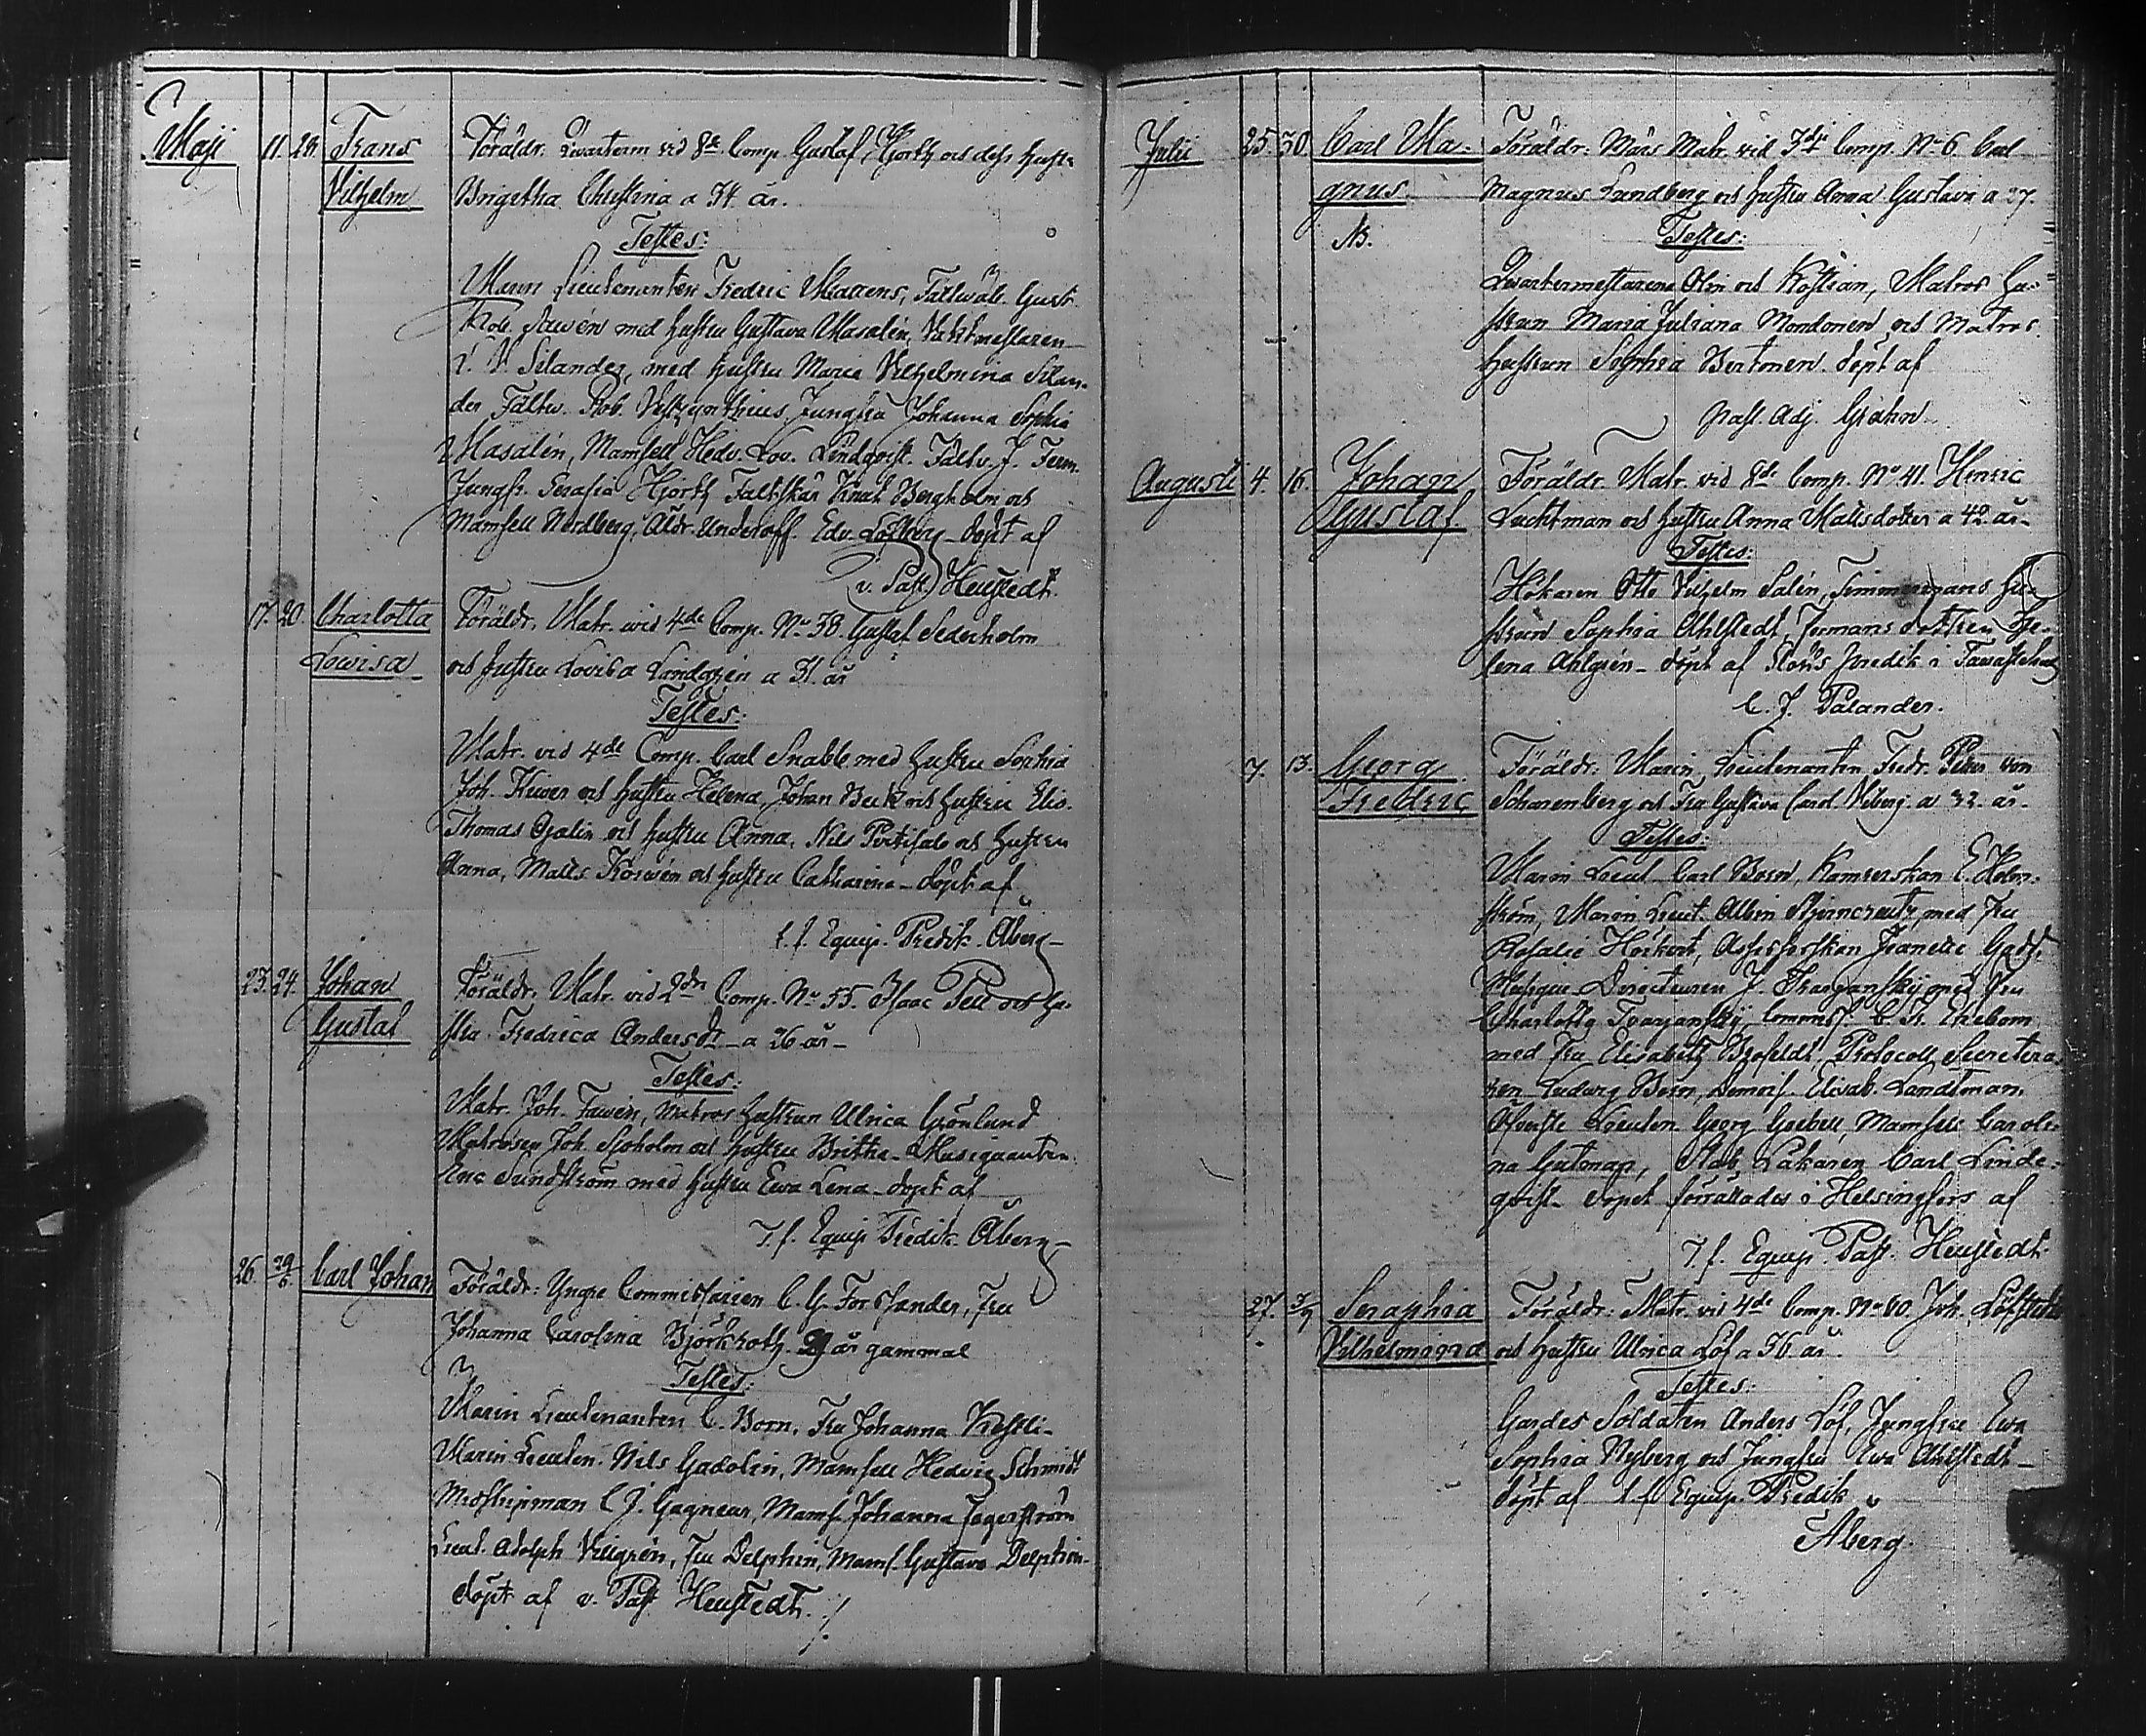 Maji 11. 28. Frans Föräldr. Qwarterm vid 8de Comp. Gustaf Hjorth och dess hustr.
Vilhelm Brigetha Christina a 34 år.
Testes:
Marin Lieutenanten Fredric Martens, Fältwäb. Gust.
Rob. Sawén med hustru Gustava Masalén, Vaktmestaren
Silander, med hustru Maria Vilhelmina Silan-
der Fältw. Rob. Jungfru Johanna Sophia
Masalén, Mamsell Hedv. Lov. Lindqvist. Fältw. J. Ferm.
Jungfr. Serafia Hjorth Fältskär Knut Bergholm och
Mamsell Nordberg, Äldr. Underoff. Edv. Löfberg döpt af
v. Past. Heustedt.
17. 20. Charlotta Föräldr. Matr. wid 4de Comp. No 38. Gustaf Sederholm
Lowisa och hustru Lovisa Lindgrén a 31. år
Testes:
Matr. vid 4de Comp. Carl Snabb med hustru Sophia
Joh. Kuwer och hustru Helena, Johan och hustru Elis.
Thomas och hustru Anna, Nils och hustru
Anna, Matts och hustru Catharina döpt af
t. f. Equip. Predik. Åberg
23. 24. Johan Föräldr. Matr. vid 2dra Comp. No 55. Isaac Pell och hu-
Gustaf stru Fredrica Andersdt a 26 år
Testes:
Matr. Joh. Fawén, Matros hustrun Ulrica Grönlund
Matrosen Joh. Sjöholm och hustru Britha Musiquanten
Sundström med hustru Ewa Lena döpt af
T. f. Equip Predik. Åberg
26. 29/6 Carl Johan Föräldr: Yngre Commissarien C. G. Forssander, Fru
Johanna Carolina Björkroth 29 år gammal
Testes:
Marin Lieutenanten C. Born, Fru Johanna
Marin Lieuten. Nils Gadolin, Mamsell Hedvig Schmidt
Midshipman C J. Gagneur, Mams. Johanna Jagerström
Lieut. Adolph Villgrén, Fru Delphin, Mams. Gustava Delphin
döpt af v. Past Heustedt.
Julii 25. 30. Carl Ma- Föräldr: Märs Matr. vid 3dje Comp. No 6. Carl
gnus. Magnus Lundberg och hustru Anna Gustava a 27.
NB. Testes:
Qwartermestarena Olin och Matros hu-
strun Maria Juliana och Matros
hustrun Sophia döpt af
Past. Adj. Grahn
Augusti 4. 16. Johan Föräldr. Matr. vid 8de Comp. No 41. Henric
Gustaf. Lucktman och hustru Anna Mattsdotter a 42 år
Testes:
Hökaren Otto Vilhelm Salén, Timmermans hu-
strun Sophia Ahlstedt, Formans dottren He-
lena Ahlgrén döpt af Slotts Predik. i Tawastehus
C. J. Palander.
7. 13. Georg Föräldr. Marin Lieutenanten Fredr. Petter von
Fredric Schanenberg och Fru Gustava Carol. Viberg a 32. år
Testes:
Marin Lieut Carl Born, Kamrerskan E. Holm-
ström, Marin Lieut. Albin Stjerncreutz med Fru
Rosalie Assessorskan Jeanette Gadd.
Musique Directeuren J. Tvarjansky med Fru
Charlotta Tvarjansky, C. F. Ekebom
med Fru Elisabeth Brofeldt, Protocolls Secretera-
ren Ludvig Born, Demois. Elisab. Landtman.
Öfverste Lieuten. Georg Goebell, Mamsell Caroli-
na Gutman, Stabs Läkaren Carl Linde-
qvist. Dopet förrättades i Helsingfors af
T. f. Equip. Past. Heustedt.
27. 3/9 Seraphia Föräldr: Matr. vid 4de Comp. No 80. Joh. Löfstedt
Vilhelmina och hustru Ulrica Löf a 36 år.
Testes:
Gardes Soldaten Anders Löf, Jungfru Ewa
Sophia Nyberg och Jungfru Ewa Ahlstedt
döpt af t. f. Equip. Predik
Åberg.